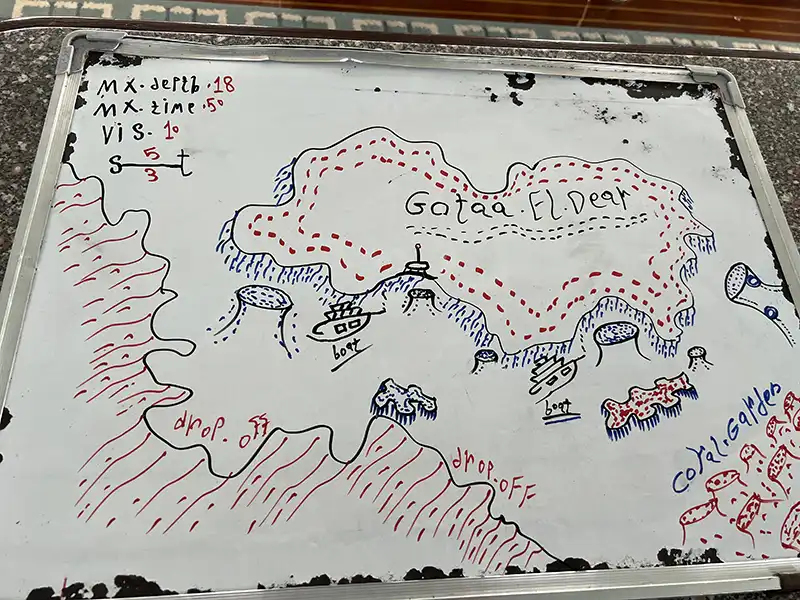 MX. depth. 18
MX. time. 50
VIS. 10
5
S—t
3
Gotaa. El. Dear
boat
boat
drop. off
drop. OFF
Coral. Garden